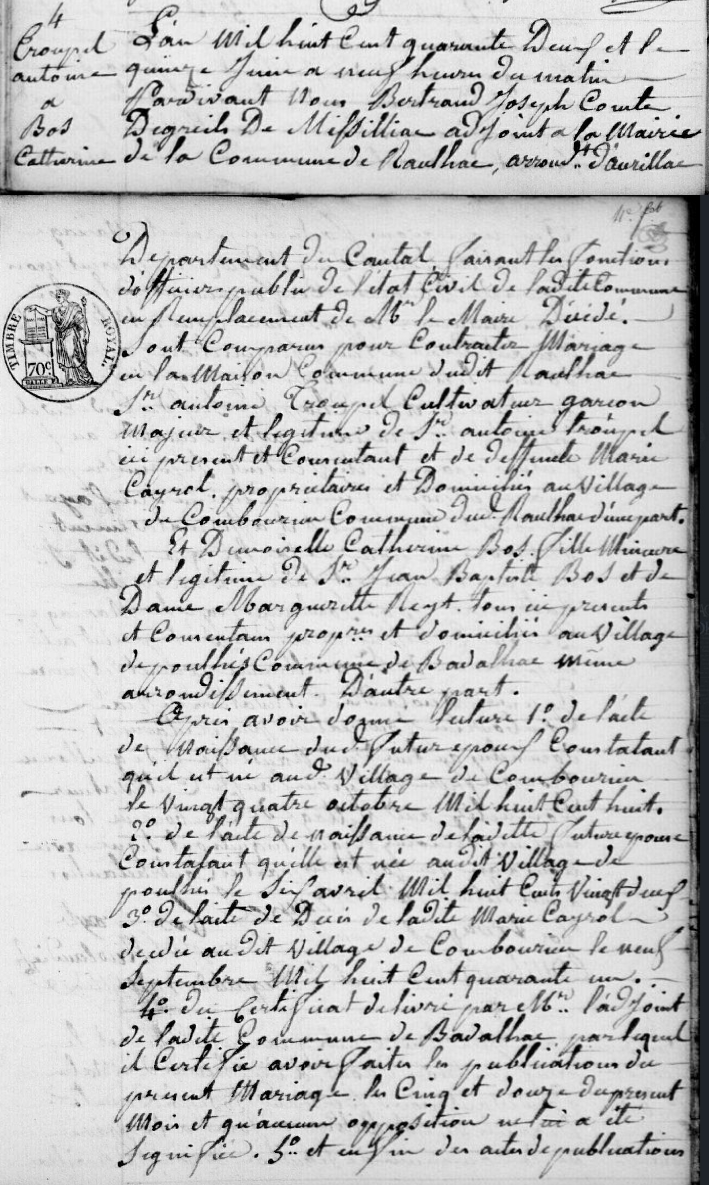 4
Troupel
antoine
a
Bos
Catherine
L'an Mil huit Cent quarante Deux et le
quinze Juin a neuf heures du matin
Pardivant Nous Bertrand Joseph Comte
Degreils De Messilliac adjoint a la Mairie
de la Commune de Raulhac, arrond.t d'aurillac
Departement du Cantal faisant les fonctions
d'officier public de l'état Civil de ladite Commune
en Remplacement de Mr. le Maire Décédé.
Sont Comparus pour Contracter Mariage
en la Maison Commune dudit Raulhac
Sr. antoine Troupel Cultivateur garcon
Majeur et legitime de Sr. antoine troupel
ici present et Consentant et de deffunte Marie
Cayrol. proprietaires et Domiciliés au Village
de Combourieu Commune dud. Raulhac d'une part.
Et Demoiselle Catherine Bos fille Mineure
et legitime de Sr. Jean Baptiste Bos et de
Dame Marguerite Reyt. tous ici presents
et Consentans propres. et domiciliés au Village
de poulhés Commune de Badalhac même
arrondissement. D'autre part.
Apres avoir donné lecture 1o. de l'acte
de Naissance dud. futur epoux Constatant
qu'il est né aud. Village de Combourieu
le Vingt quatre octobre Mil huit Cent huit.
2o. de l'acte de naissance de ladite future epouse
Constatant qu'elle est née audit Village de
poulhés le Six avril Mil huit Cents Vingt deux
3o. de l'acte de Décés de ladite Marie Cayrol
decédée audit Village de Combourieu le neuf
Septembre Mil huit Cent quarante un.
4o. du Certificat delivré par Mr. l'adjoint
de ladite Commune de Badalhac par lequel
il Certifie avoir faites les publications du
present Mariage les Cinq et douze du present
Mois et qu'aucune opposition ne lui a été
Signifiée. 5o. et enfin des actes de publications
TIMBRE ROYAL.
70c